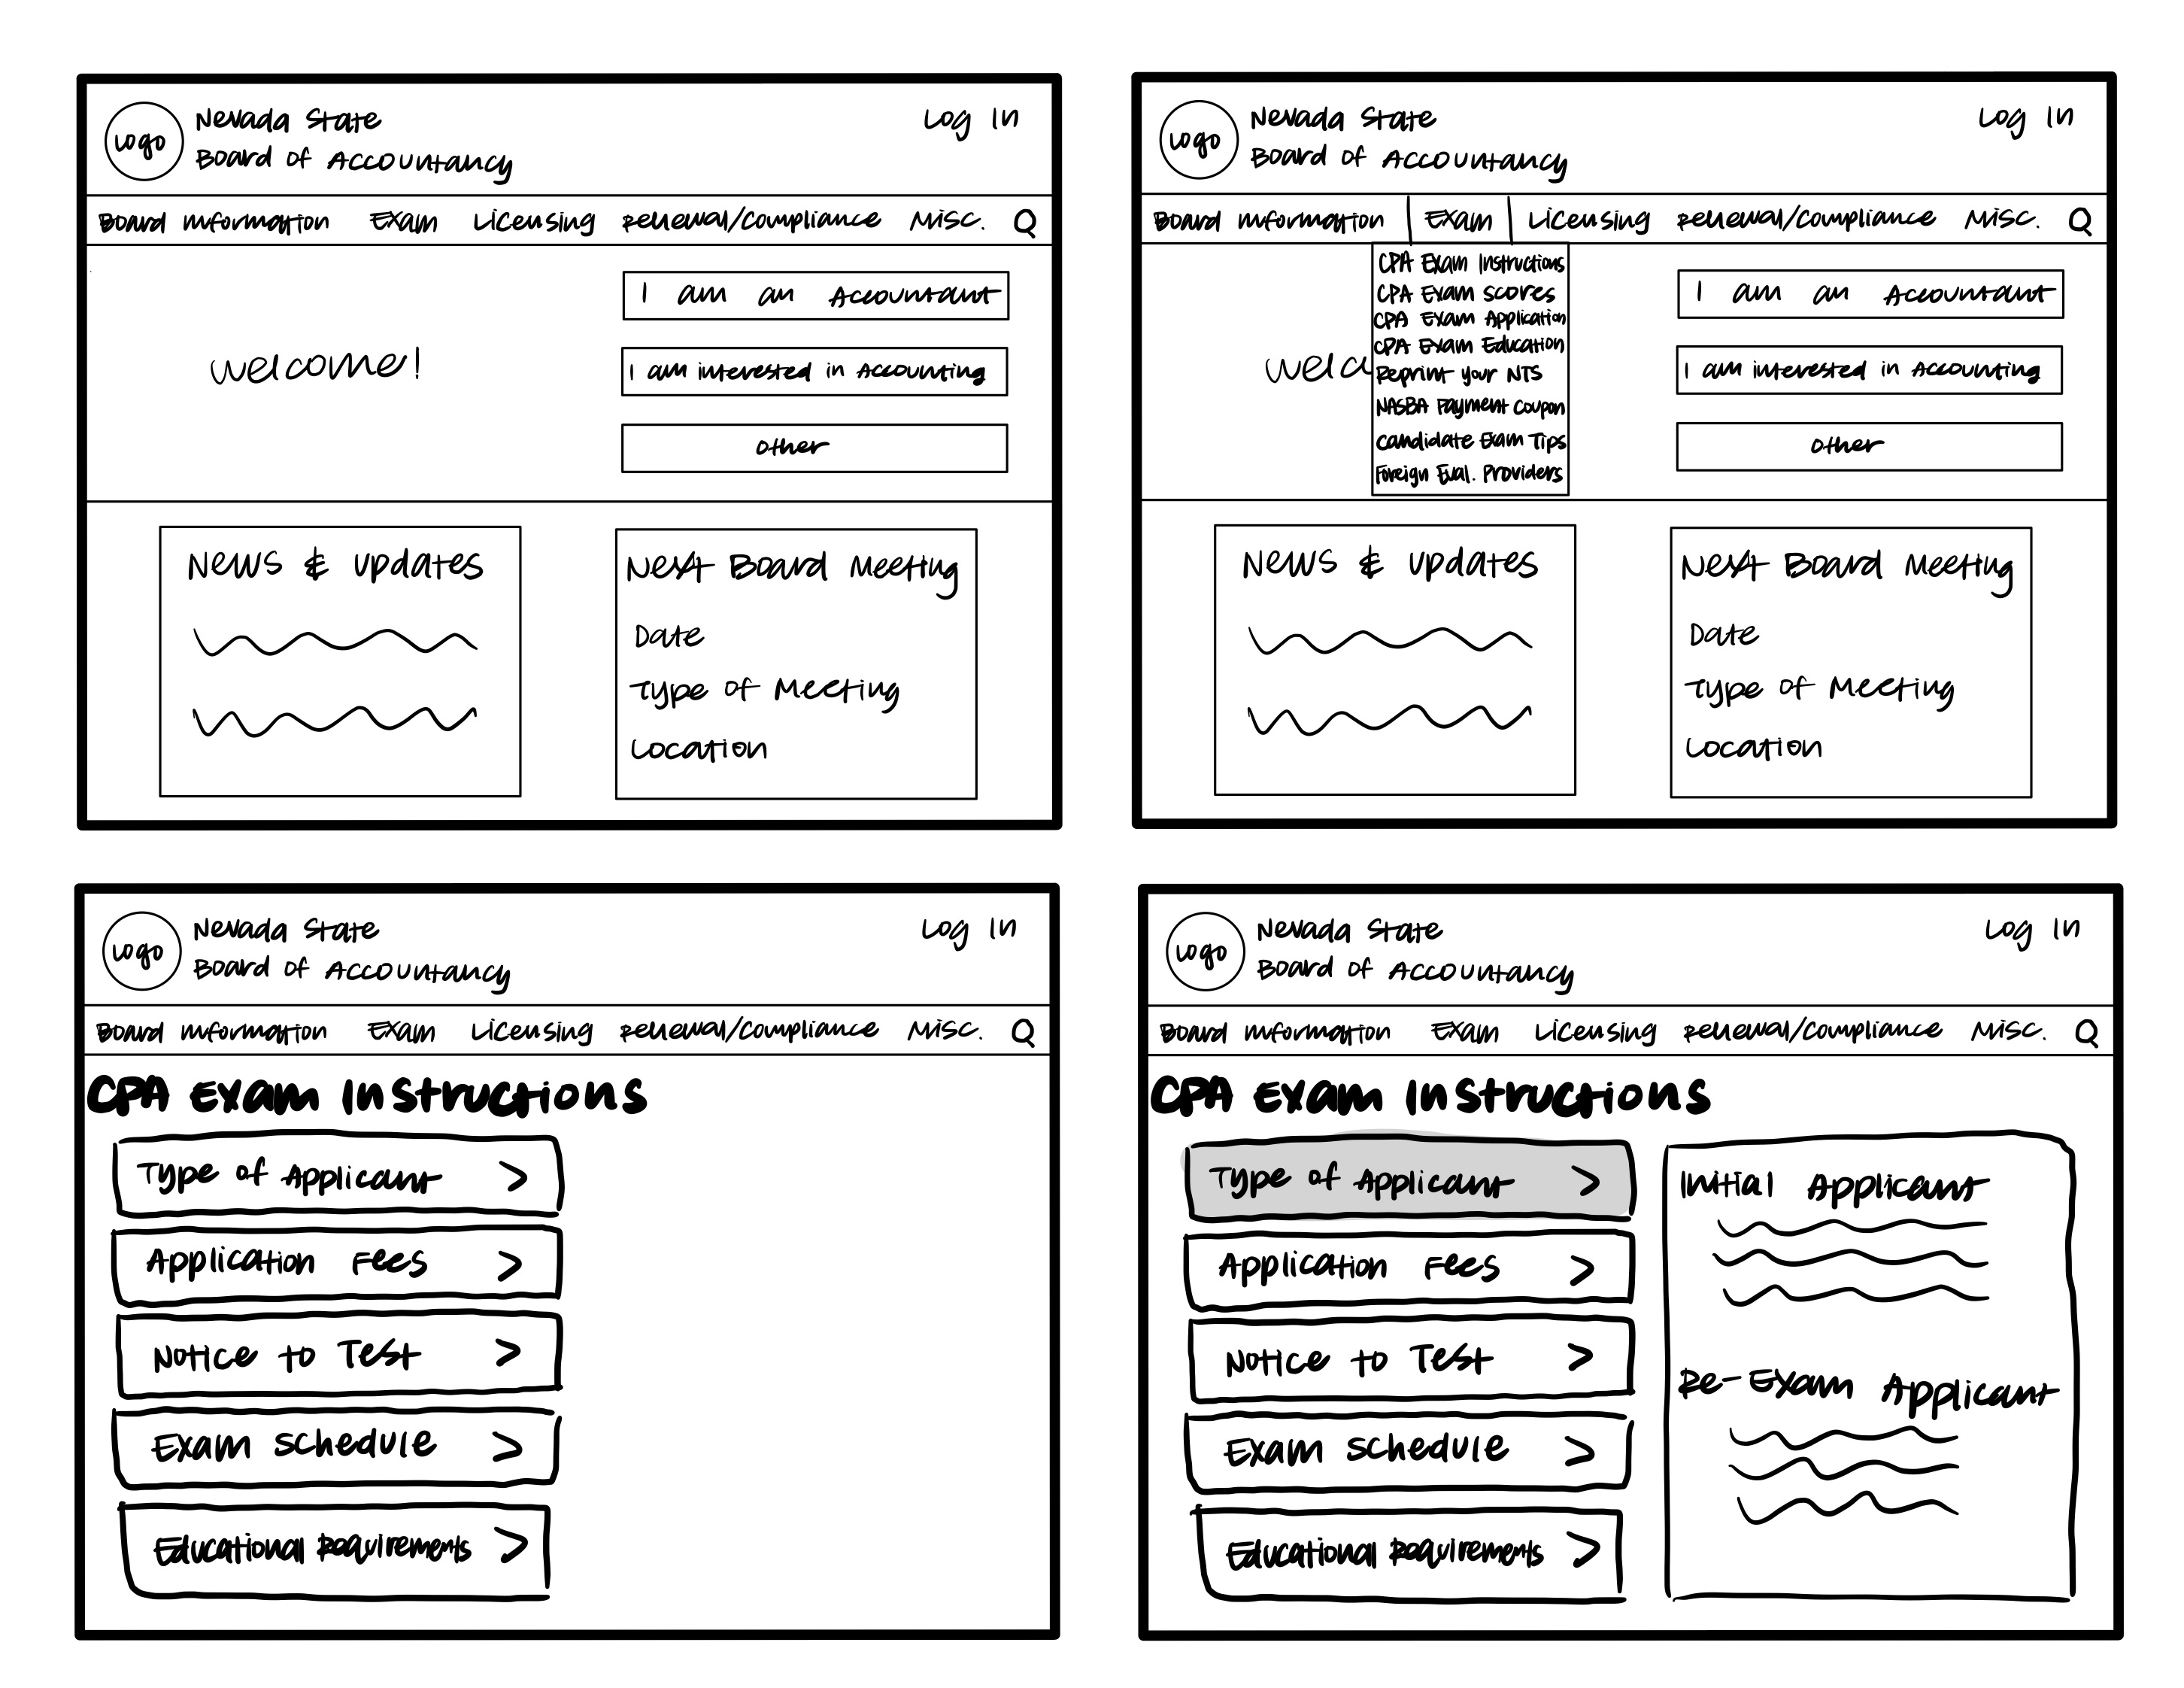 Logo
Nevada State
Board of Accountancy
Log In
Board Information Exam Licensing Renewal/Compliance Misc. Q
Welcome!
I am an Accountant
I am interested in Accounting
Other
News & Updates
Next Board Meeting
Date
Type of Meeting
Location
Logo
Nevada State
Board of Accountancy
Log In
Board Information Exam Licensing Renewal/Compliance Misc. Q
CPA Exam Instructions
CPA Exam Scores
CPA Exam Application
CPA Exam Education
Reprint your NTS
NASBA Payment Coupon
Candidate Exam Tips
Foreign Eval. Providers
Welc
I am an Accountant
I am interested in Accounting
Other
News & Updates
Next Board Meeting
Date
Type of Meeting
Location
Logo
Nevada State
Board of Accountancy
Log In
Board Information Exam Licensing Renewal/Compliance Misc. Q
CPA Exam Instructions
Type of Applicant >
Application Fees >
Notice to Test >
Exam Schedule >
Educational Requirements >
Logo
Nevada State
Board of Accountancy
Log In
Board Information Exam Licensing Renewal/Compliance Misc. Q
CPA Exam Instructions
Type of Applicant >
Application Fees >
Notice to Test >
Exam Schedule >
Educational Requirements >
Initial Applicant
Re-Exam Applicant